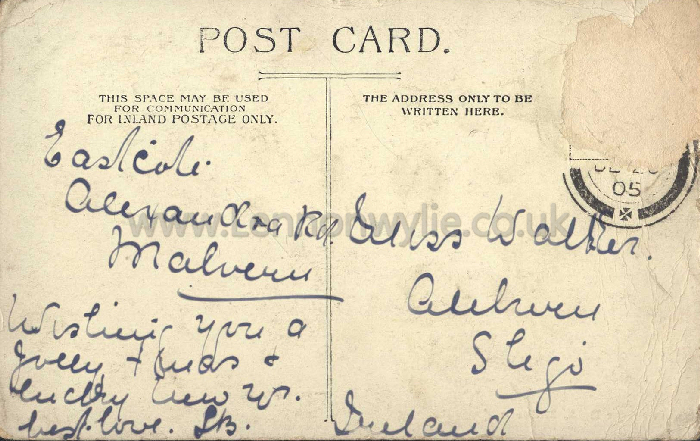 POST CARD.
THIS SPACE MAY BE USED
FOR COMMUNICATION
FOR INLAND POSTAGE ONLY.
THE ADDRESS ONLY TO BE
WRITTEN HERE.
05
Alexandra Rd.
Malvern
Wishing you a
Jolly Xmas &
lucky new yr.
best love.
Miss Walker.
Sligo
Ireland